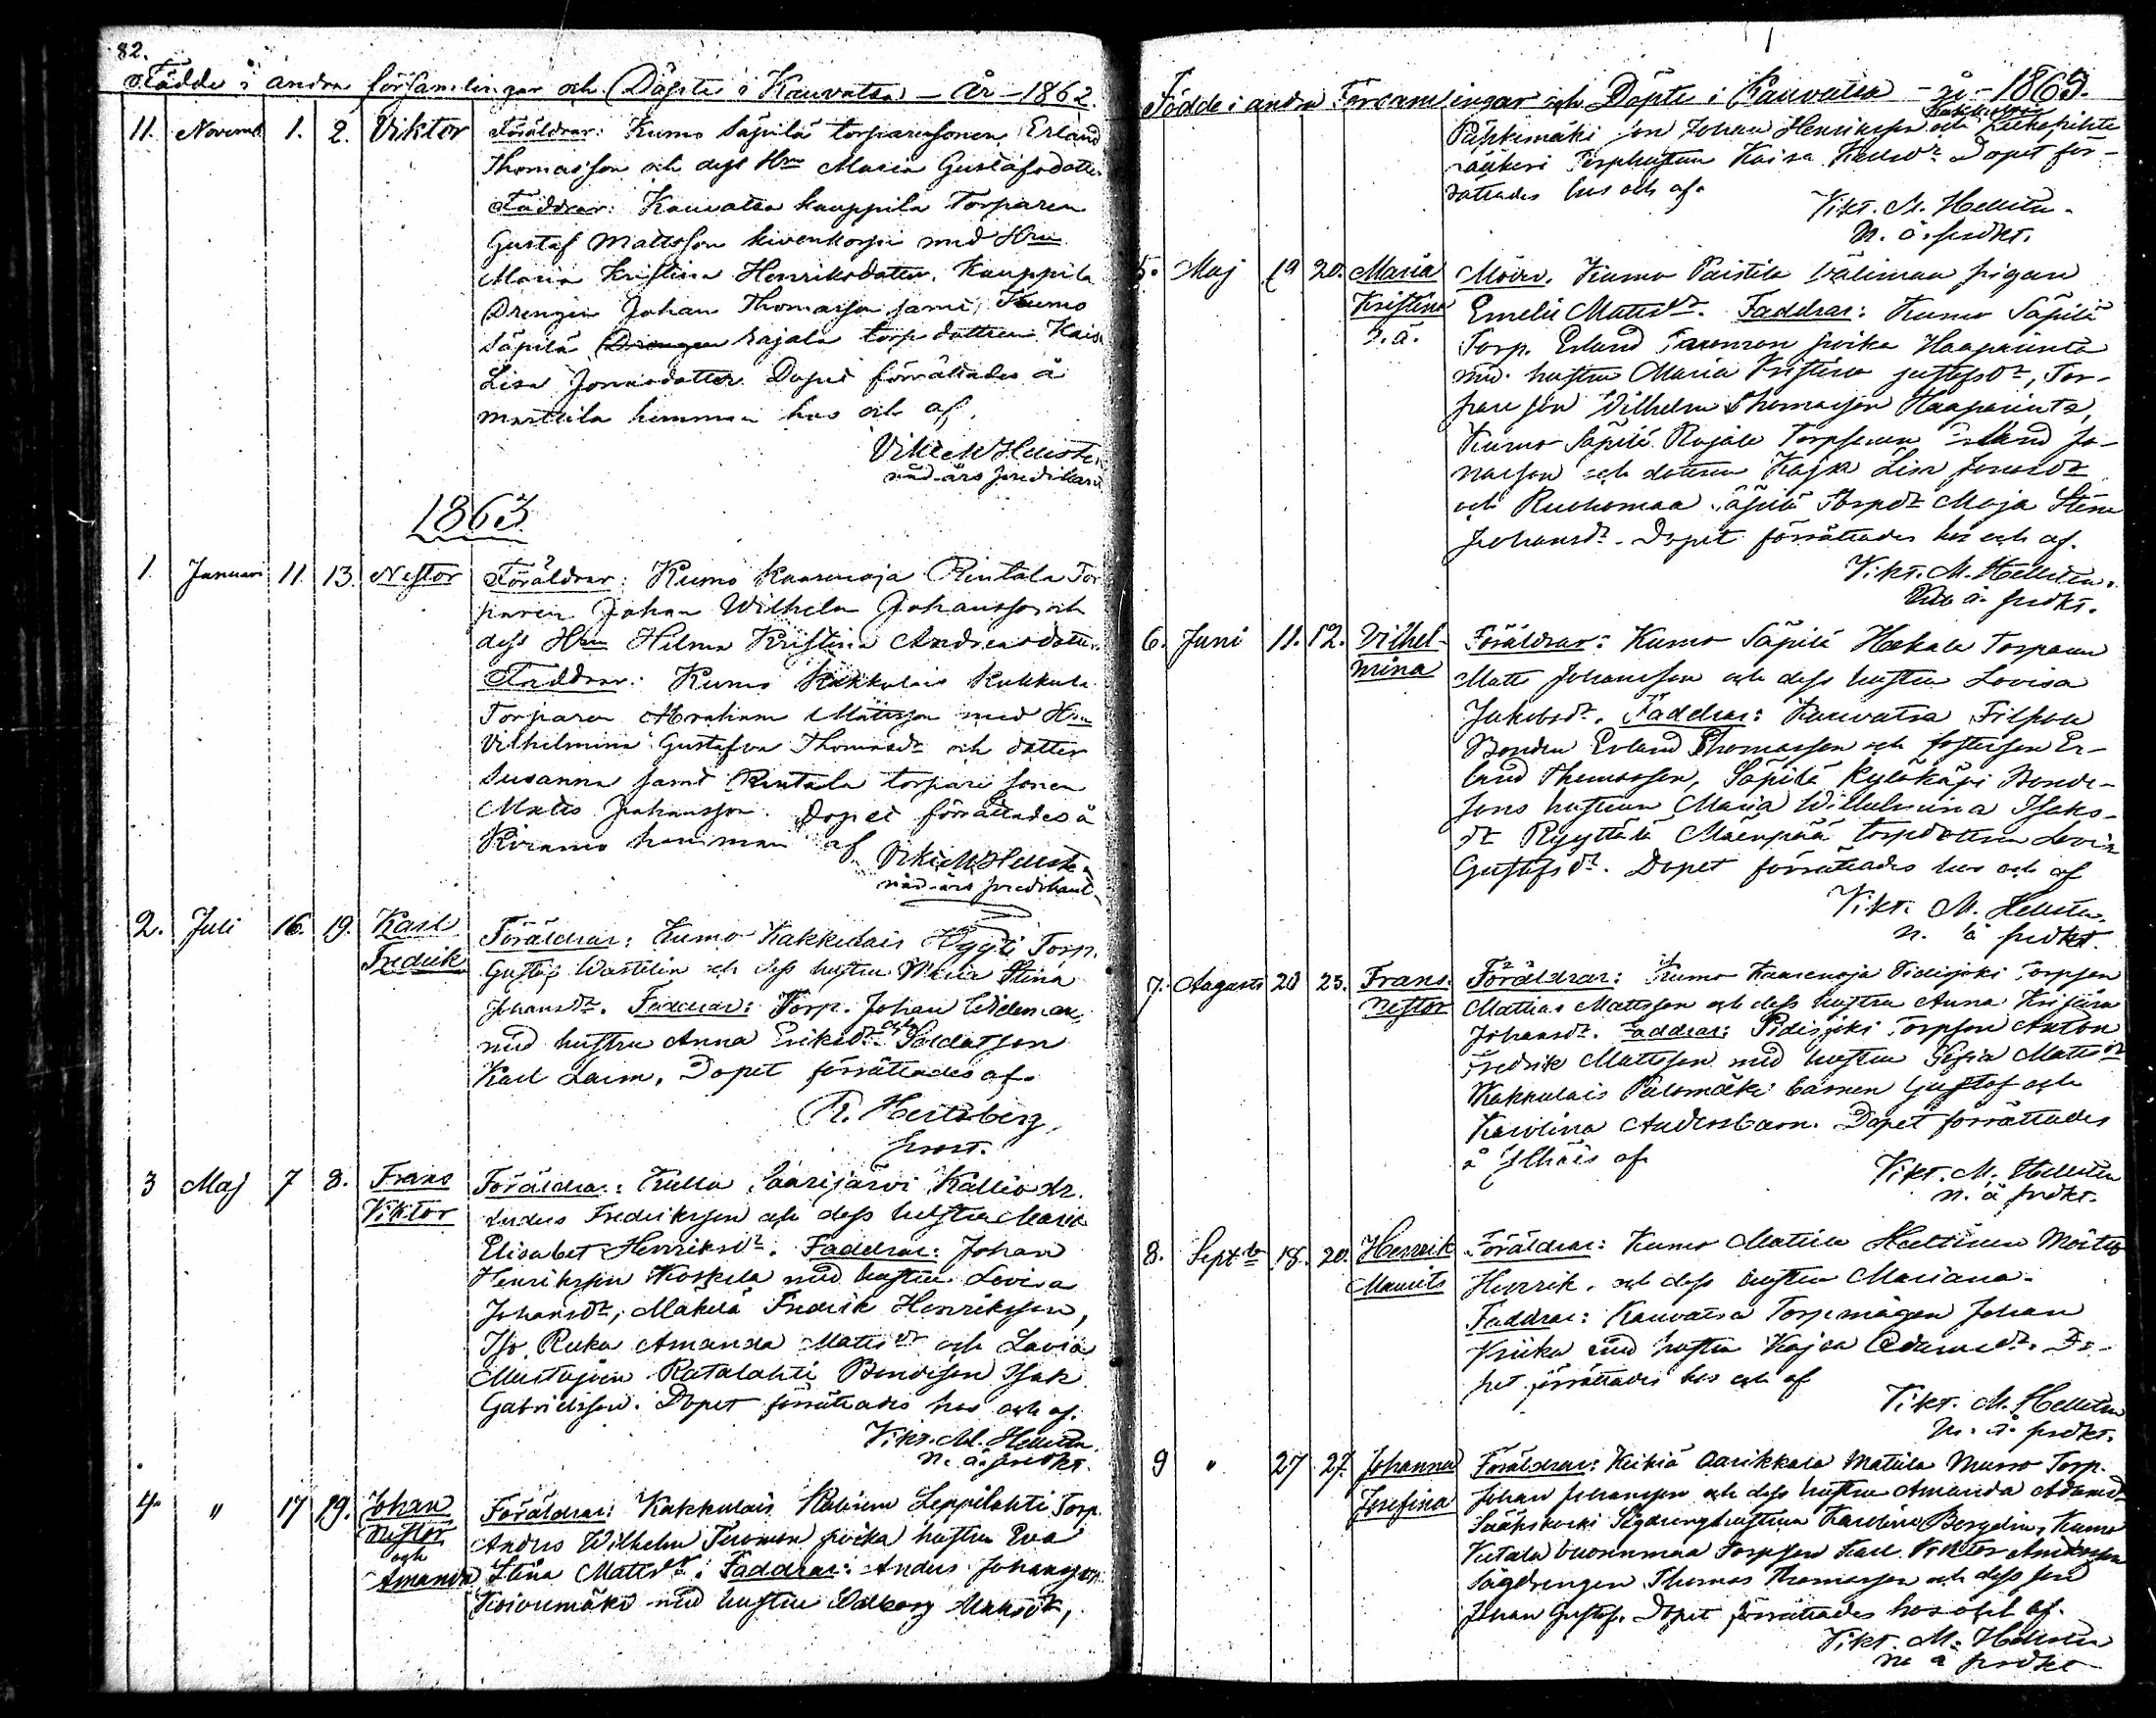 82.
Födde i andra församlingar och Döpte i Kauvatsa – År – 1862.
11. Novemb. 1. 2. Viktor Föräldrar: Kumo Säpilä torparesonen Erland
Thomasson och dess Hru Maria Gustafsdotter
Faddrar: Kauvatsa Kauppila Torparen
Gustaf Mattsson Kivenkorja med Hru
Maria Kristina Henriksdotter, Kauppila
Drengen Johan Thomasson samt Kumo
Säpilä Drengen Rajala torp dottren Kaisa
Lisa Jonasdotter. Dopet förrättades å
Marttila hemman hos och af,
Vikt. M Hellsten
nåd-års predikant
1863
1. Januari 11. 13. Nestor Föräldrar: Kumo Kaarenoja Rintala Tor
paren Johan Wilhelm Johansson och
dess Hru Hilma Kristina Andreasdotter
Faddrar: Kumo Kakkulais Kukkula
Torparen Abraham Mattsson med Hru
Vilhelmina Gustafva Thomasdr och dotter
Susanna samt Rintala torpare sonen
Matts Johansson. Dopet förrättades å
hemman af
Vikt M Hellsten
nåd-års predikant
2. Juli 16. 19. Karl
Fredrik
Föräldrar: Kumo Kakkulais Torp.
Gustaf Wastelin och dess hustru Maria Stina
Johansdr. Faddrar: Torp. Johan Wideman
med hustru Anna Eriksdr och Soldatson
Karl Larm. Dopet förrättades af.
R. Hertzberg,
Prost.
3 Maj 7 8. Frans
Viktor
Föräldrar: Kulla Saarijärvi Kallio dr.
Anders Fredriksson och dess hustru Maria
Elisabet Henriksdr. Faddrar: Johan
Henriksson Koskela med hustru Lovisa
Johansdr, Mäkelä Fredrik Henriksson,
Iso Ruka Amanda Mattsdr och Lavia
Mustajoen Ratalahti Bondeson Isak
Gabrielsson. Dopet förrättades hos och af.
Vikt. M. Hellsten.
n. å. predkt.
4. " 17 19. Johan
Nestor
och
Amanda
Föräldrar: Kakkulais Leppilahti Torp.
Anders Wilhelm Turonon poika hustru Eva
Stina Mattsdr. Faddrar: Anders Johansson
Koivumäki med hustru Walborg
Födde i andra Församlingar och Döpte i Kauvatsa – år – 1863.
son Johan Henriksson och
Kaisa Dopet för-
rättades hos och af.
Vikt. M. Hellsten.
n. å. predkt.
5. Maj 19 20. Maria
Kristina
o. ä.
Modr. Kumo Paistila Välimaa pigan
Emelie Mattsdr. Faddrar: Kumo Säpilä
Torp. Erland poika Haaparinta
med hustru Maria Kristina Gustafsdr, Tor-
pare son Wilhelm Thomasson Haaparinta,
Kumo Säpilä Rajala Torpsonen Erland Jo-
nasson och dottren Kajsa Lisa Jonasdr
och Ruohomaa Säpilä Torpdr Maja Stina
Johansdr. Dopet förrättades hos och af.
Vikt. M. Hellsten.
å. predkt.
6. Juni 11. 12. Vilhel-
mina
Föräldrar: Kumo Säpilä Hakala Torparen
Matts Johansson och dess hustru Lovisa
Jakobsdr. Faddrar: Kauvatsa Filpou
Bonden Erland Thomasson och fosterson Er-
land Thomasson, Säpilä Kyläkäpi Bonde-
sons hustrun Maria Wilhelmina Isaks-
dr Ryyttälä Mäenpää torpdottren Lovisa
Gustafsdr. Dopet förrättades hos och af
Vikt. M. Hellsten
n. å predkt.
7. Augusti 20 23. Frans
Nestor
Föräldrar: Kumo Kaarenoja Pidisjoki Torpson
Mathias Mattsson och dess hustru Anna Kristina
Johansdr. Faddrar: Pidisjoki Torpson Anton
Fredrik Mattsson med hustru Mattsdr
Kakkulais Palomäki barnen Gustaf och
Karolina Andersbarn. Dopet förrättades
å af
Vikt. M. Hellsten
n. å predkt.
8. Septbr 18. 20. Henrik
Maurits
Föräldrar: Kumo Mattila
Henrik, och dess hustru Mariana.
Faddrar: Kauvatsa Torpmågen Johan
Kriika med hustru Kajsa Adamsdr. Do-
pet förrättades hos och af
Vikt. M. Hellsten
n. å. predkt.
9 " 27 27. Johanna
Josefina
Föräldrar: Keikiä Aarikkala Mattila Torp.
Johan Johansson och dess hustru Amanda Adamsdr
Sääkskoski Sågdrenghustrun Karolina Bergelin, Kumo
Vuorenmaa Torpson Karl Viktor Andersson
Sågdrengen Thomas Thomasson och dess son
Johan Gustaf. Dopet förrättades hos och af.
Vikt. M. Hellsten
n. å predkt